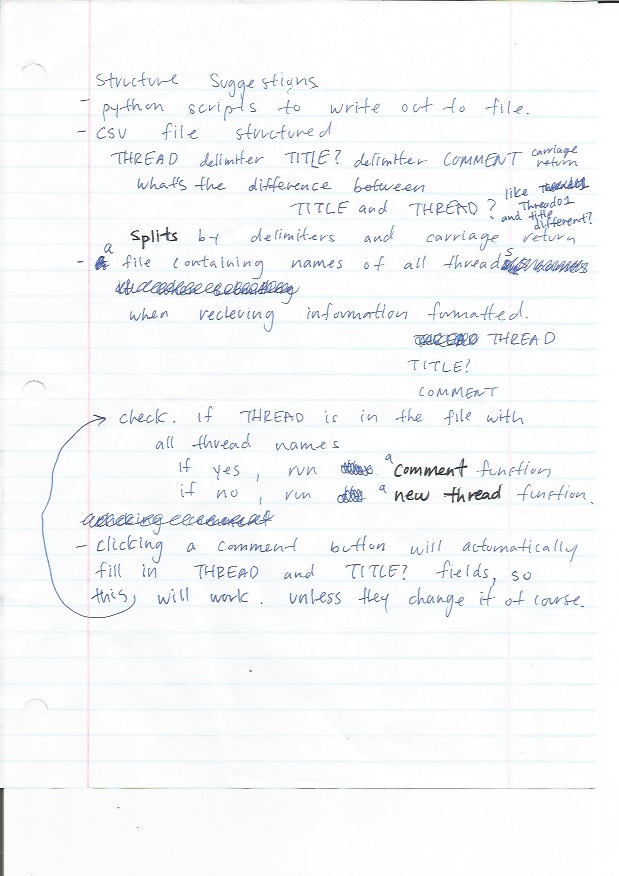 Structure Suggestions
- python scripts to write out to file.
- CSV file structured
THREAD delimiter TITLE? delimiter COMMENT carriage return
what's the difference between
TITLE and THREAD? like Thread01 and title different?
splits by delimiters and carriage return
- a file containing names of all threads
when recieving information formatted.
THREAD
TITLE?
COMMENT
check. if THREAD is in the file with
all thread names
if yes, run a comment function
if no, run a new thread function.
- Clicking a comment button will automatically
fill in THREAD and TITLE? fields, so
this, will work. unless they change it of course.